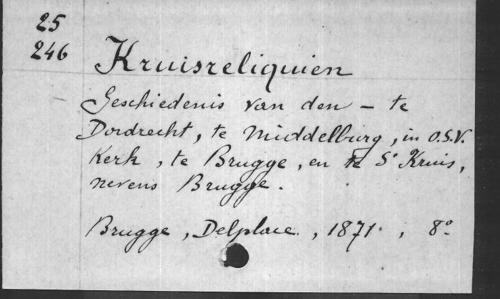 25
246
Kruisreliquien
Geschiedenis van den – te
Dordrecht, te Middelburg, in O.S.V.
Kerk, te Brugge, en te St Kruis,
nevens Brugge.
Brugge, Delplace, 1871, 8º